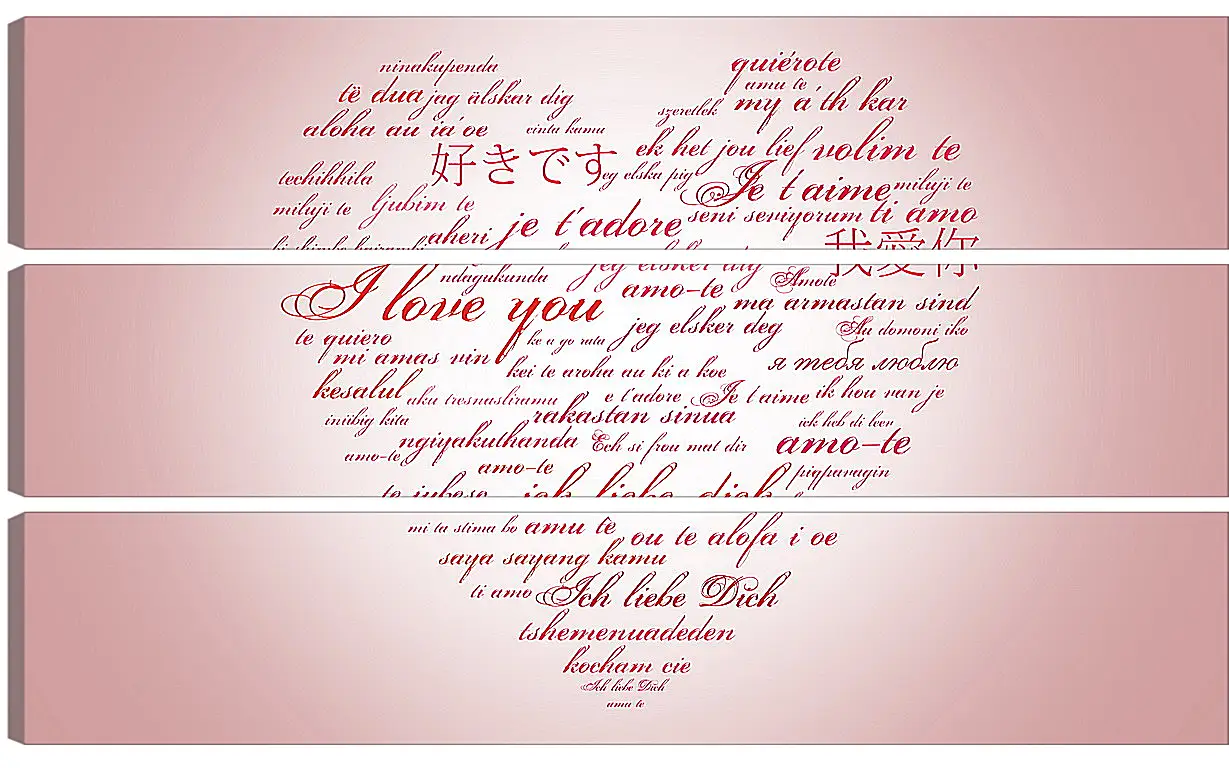 ninakupenda
quiérote
amu te
të dua jag älskar dig
szeretlek my a'th kar
aloha au ia'oe cinta kamu
ek het jou lief volim te
好きです
techihhila
eg elska pig Je t'aime miluji te
miluji te ljubim te
seni seviyorum ti amo
aheri je t'adore
我愛你
ndagukunda jeg elsker dig Amote
I love you amo-te ma armastan sind
te quiero ke a go rata jeg elsker deg Aa domoni iko
mi amas vin kei te aroha au ki a koe я тебя люблю
kesalul aku tresnasliramu e t'adore Je t'aime ik hou van je
iniibig kita rakastan sinua ick heb di leev
ngiyakuthanda Ech si frou mat dir amo-te
amo-te amo-te piqparagin
ich liebe dich
mi ta stima bo amu te ou te alofa i oe
saya sayang kamu
ti amo Ich liebe Dich
tshemenuadeden
kocham cie
Ich liebe Dich
amu te